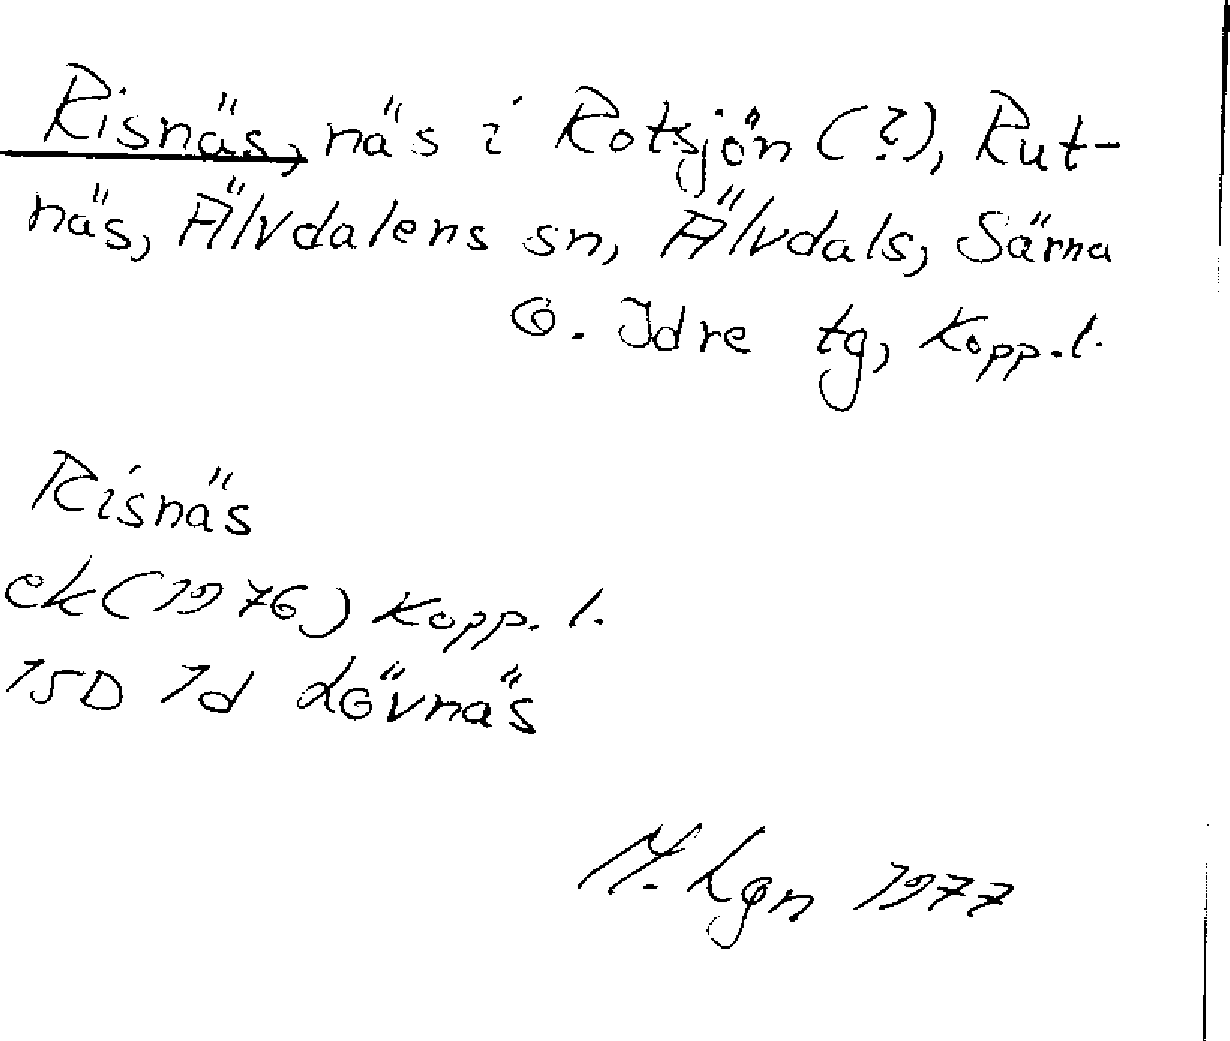 Risnäs, näs i Rotsjön (?), Rut-
näs, Älvdalens sn, Älvdals, Särna
o. Idre tg, Kopp. l.
Risnäs
ek (1976) Kopp. l.
15D 1d Lövnäs
M. Lgn 1977